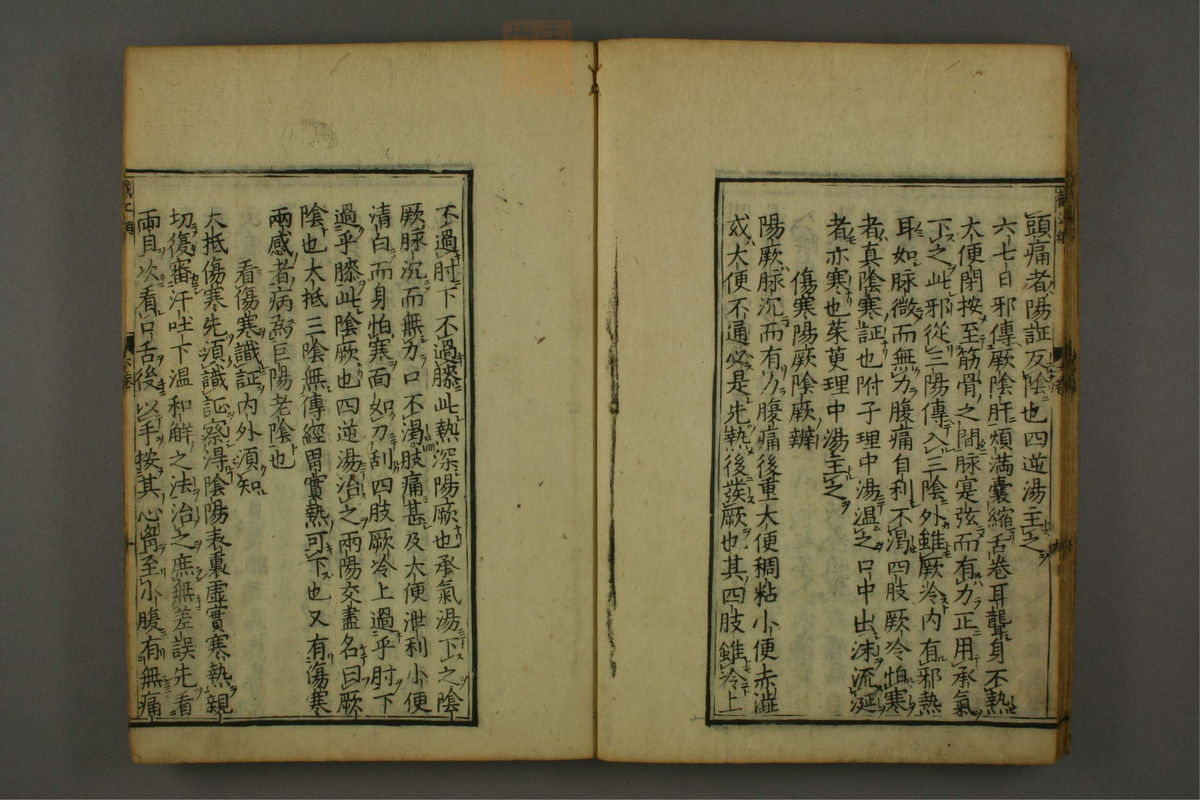 頭痛者陽証反陰也四逆湯主之
六七日邪傳厥陰肝煩満囊縮舌卷耳聾身不熱
大便閉按至筋骨之間脉寔弦而有力正用承氣
下之此邪從三陽傳入三陰外雖厥冷内有邪熱
耳如脉微而無力腹痛自利不渇四肢厥冷怕寒
者真陰寒証也附子理中湯温之口中出沫流涎
者亦寒也茱萸理中湯主之
傷寒陽厥陰厥辨
陽厥脉沉而有力腹痛後重大便稠粘小便赤澁
或大便不通必是先熱後發厥也其四肢雖冷上
不過肘下不過膝此熱深陽厥也承氣湯下之陰
厥脉沉而無力口不渇肢痛甚及大便泄利小便
清白而身怕寒面如刀刮四肢厥冷上過乎肘下
過乎膝此陰厥也四逆湯治之兩陽交盡名曰厥
陰也大抵三陰無傳經胃實熱可下也又有傷寒
兩感者病為巨陽老陰也
看傷寒識証内外須知
大抵傷寒先須識証察得陰陽表裏虚實寒熱親
切復審汗吐下温和解之法治之庶無差誤先看
兩目次看口舌後以手按其心胷至小腹有無痛